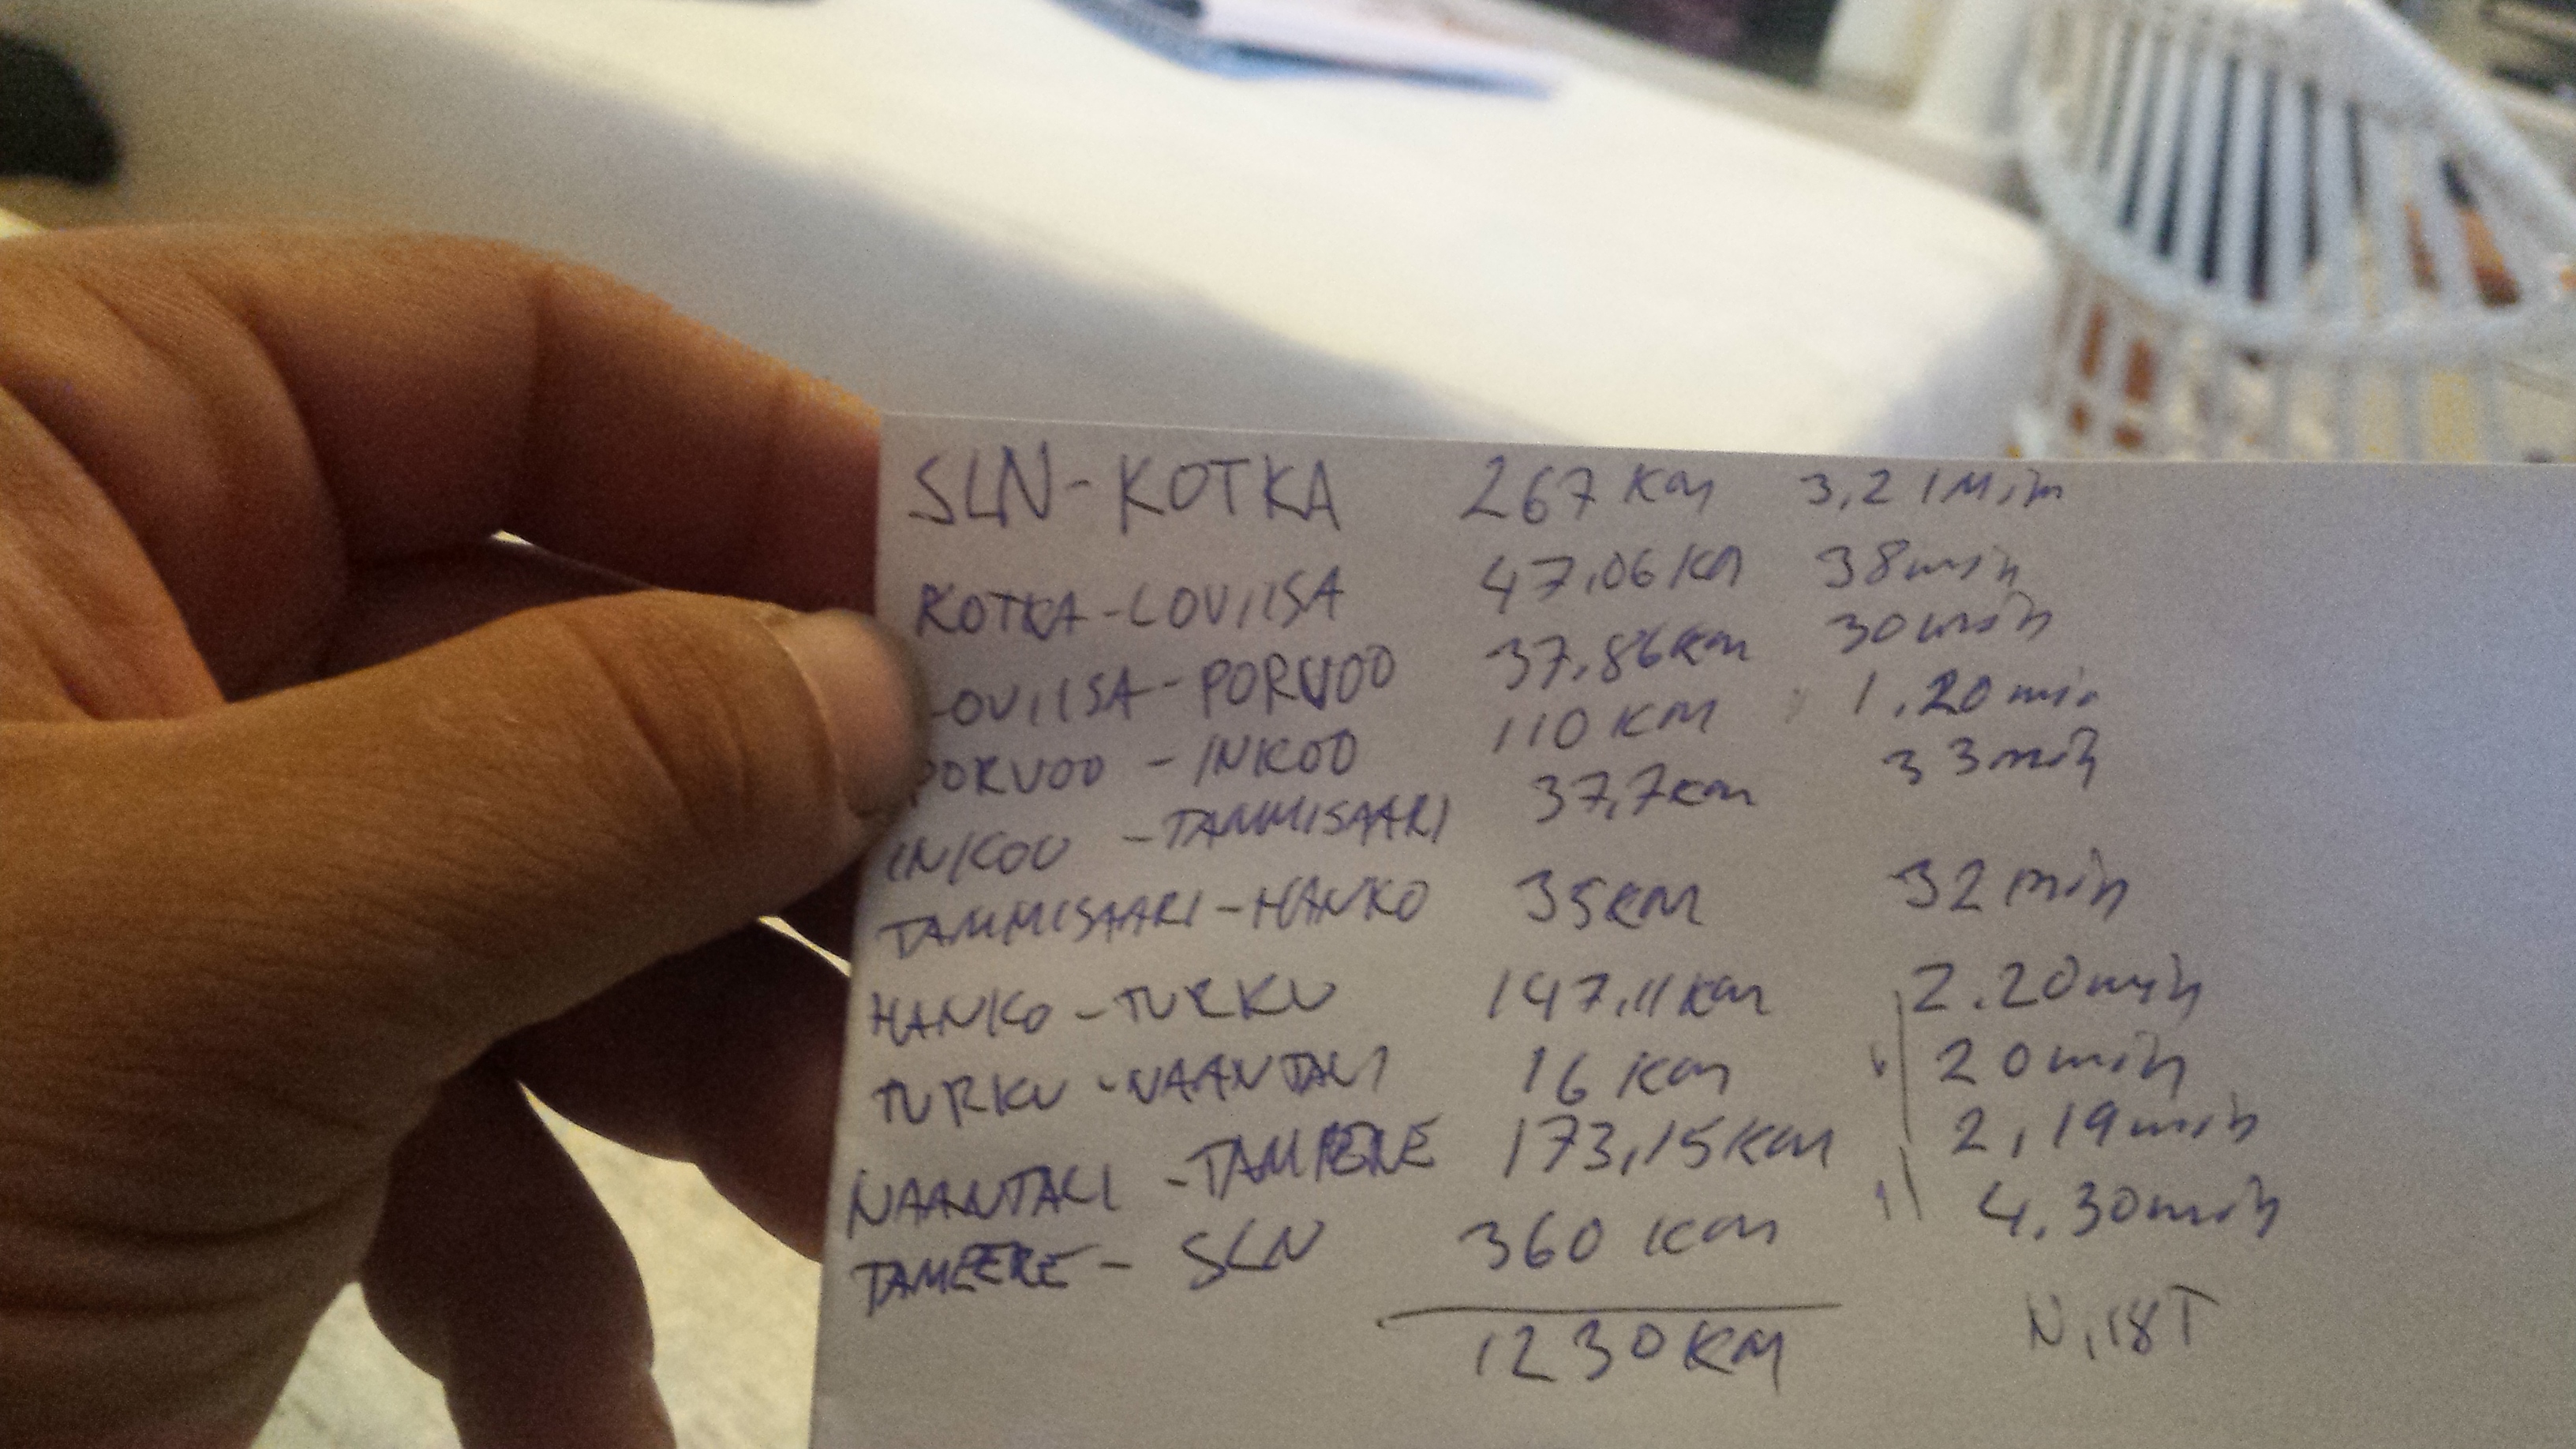 SLN-KOTKA 267 KM 3,21 Min
KOTKA-LOVIISA 47,06 KM 38 min
LOVIISA-PORVOO 37,86 KM 30 min
PORVOO - INKOO 110 KM 1.20 min
INKOO - TAMMISAARI 37,7 km 33 min
TAMMISAARI-HANKO 35 KM 32 min
HANKO - TURKU 147,11 KM 2.20 min
TURKU - NAANTALI 16 KM 20 min
NAANTALI - TAMPERE 173,15 KM 2,19 min
TAMPERE - SLN 360 KM 4.30 min
1230 KM N,18T